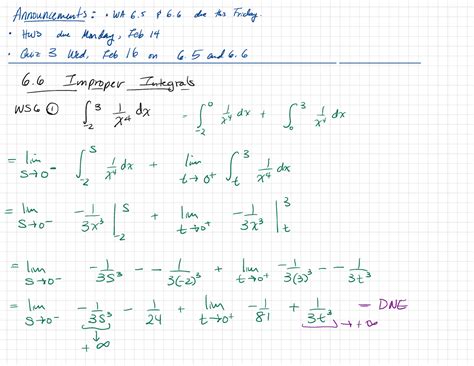 Announcements: • WA 6.5 & 6.6 due this Friday.
• HW3 due Monday, Feb 14
• Quiz 3 Wed, Feb 16 on 6.5 and 6.6
6.6 Improper Integrals
WS6 ① ∫_{-2}^{3} 1/x⁴ dx = ∫_{-2}^{0} 1/x⁴ dx + ∫_{0}^{3} 1/x⁴ dx
= lim_{s→0⁻} ∫_{-2}^{s} 1/x⁴ dx + lim_{t→0⁺} ∫_{t}^{3} 1/x⁴ dx
= lim_{s→0⁻} -1/3x³ |_{-2}^{s} + lim_{t→0⁺} -1/3x³ |_{t}^{3}
= lim_{s→0⁻} -1/3s³ - -1/3(-2)³ + lim_{t→0⁺} -1/3(3)³ - -1/3t³
= lim_{s→0⁻} -1/3s³ - 1/24 + lim_{t→0⁺} -1/81 + 1/3t³ - DNE
↓ +∞ → +∞